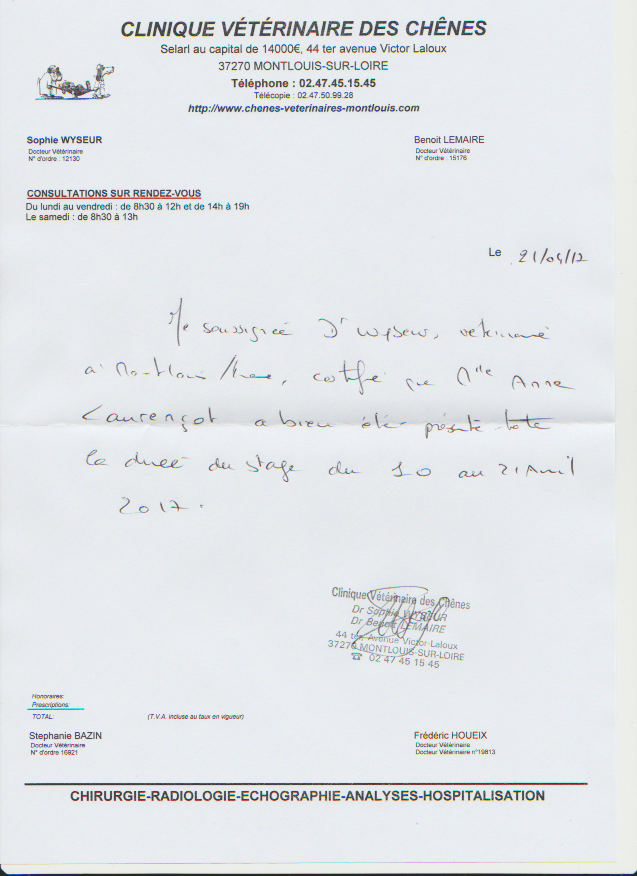 CLINIQUE VÉTÉRINAIRE DES CHÊNES
Selarl au capital de 14000€, 44 ter avenue Victor Laloux
37270 MONTLOUIS-SUR-LOIRE
Téléphone : 02.47.45.15.45
Télécopie : 02.47.50.99.28
http://www.chenes-veterinaires-montlouis.com
Sophie WYSEUR
Docteur Vétérinaire
N° d'ordre : 12130
Benoit LEMAIRE
Docteur Vétérinaire
N° d'ordre : 15176
CONSULTATIONS SUR RENDEZ-VOUS
Du lundi au vendredi : de 8h30 à 12h et de 14h à 19h
Le samedi : de 8h30 à 13h
Le 21/04/17
Je soussignée Dr Wyseur, vétérinaire
à Montlouis /Loire, certifie que Mlle Anne
Laurençot a bien été présente toute
la durée du stage du 10 au 21 Avril
2017.
Clinique Vétérinaire des Chênes
Dr Sophie WYSEUR
Dr Benoit LEMAIRE
44 ter Avenue Victor-Laloux
37270 MONTLOUIS-SUR-LOIRE
☎ 02 47 45 15 45
Honoraires:
Prescriptions:
TOTAL: (T.V.A. incluse au taux en vigueur)
Stephanie BAZIN
Docteur Vétérinaire
N° d'ordre 16921
Frédéric HOUEIX
Docteur Vétérinaire
Docteur Vétérinaire n°19813
CHIRURGIE-RADIOLOGIE-ECHOGRAPHIE-ANALYSES-HOSPITALISATION